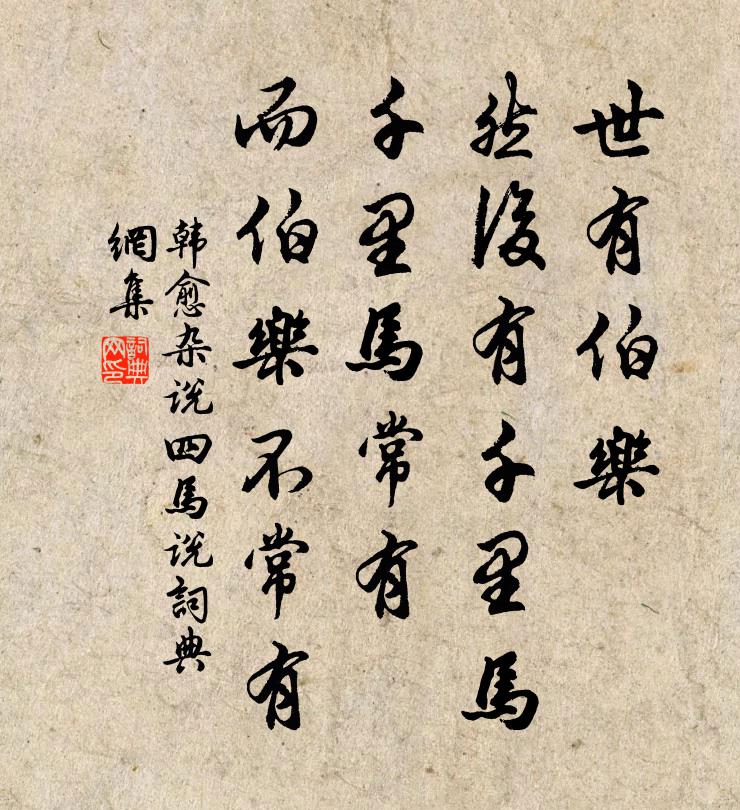 世有伯樂
然後有千里馬
千里馬常有
而伯樂不常有
韩愈杂说四馬说詞典
網集
詞典
网印